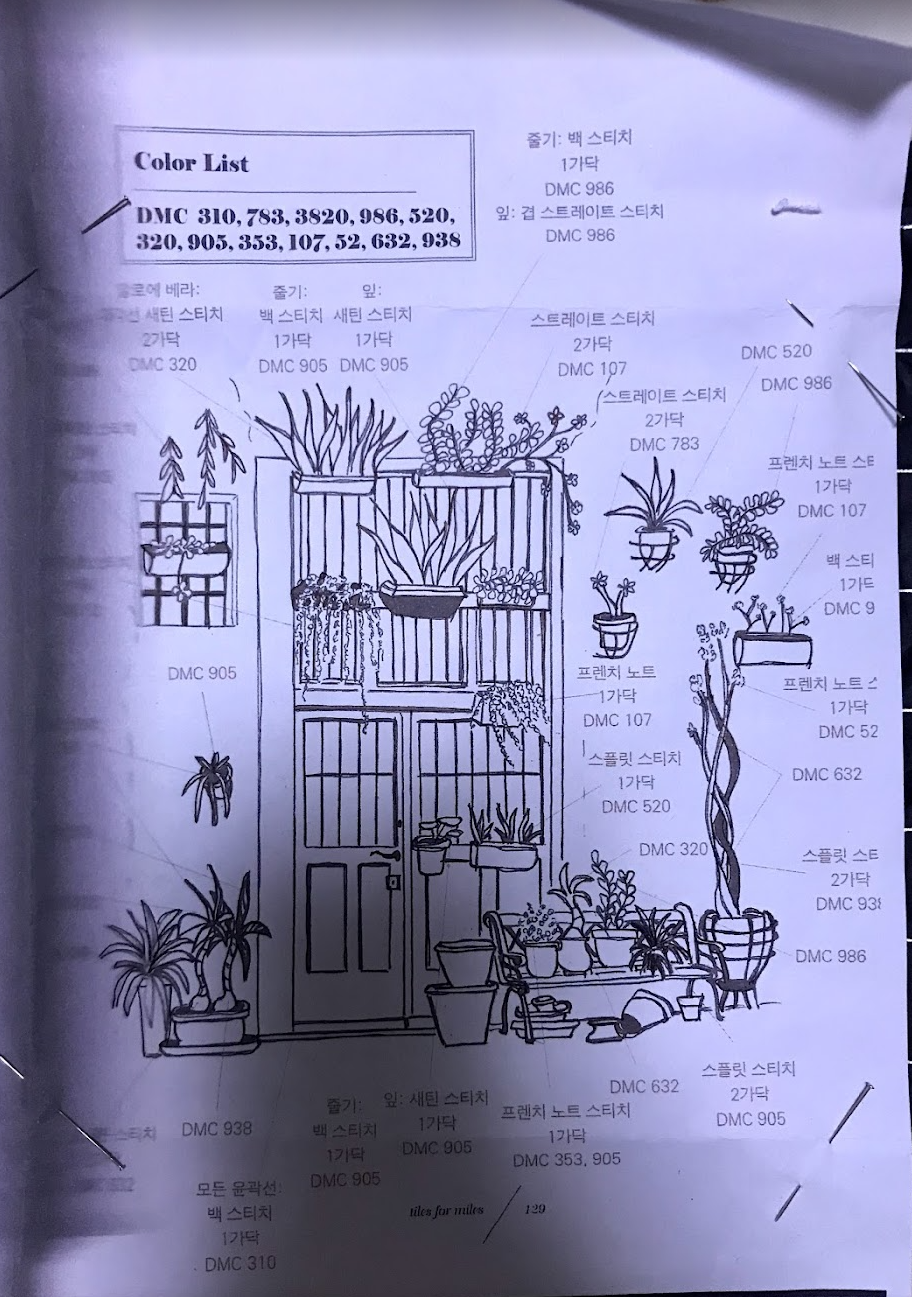 Color List
DMC 310, 783, 3820, 986, 520,
320, 905, 353, 107, 52, 632, 938
줄기: 백 스티치
1가닥
DMC 986
잎: 겹 스트레이트 스티치
DMC 986
베라:
새틴 스티치
2가닥
DMC 320
줄기:
백 스티치
1가닥
DMC 905
잎:
새틴 스티치
1가닥
DMC 905
스트레이트 스티치
2가닥
DMC 107
스트레이트 스티치
2가닥
DMC 783
DMC 520
DMC 986
프렌치 노트
1가닥
DMC 107
백
DMC
DMC 905
프렌치 노트
1가닥
DMC 107
프렌치 노트
1가닥
DMC 52
스플릿 스티치
1가닥
DMC 520
DMC 632
DMC 320
스플릿
2가닥
DMC 938
DMC 986
DMC 938
모든 윤곽선:
백 스티치
1가닥
DMC 310
줄기:
백 스티치
1가닥
DMC 905
잎: 새틴 스티치
1가닥
DMC 905
프렌치 노트 스티치
1가닥
DMC 353, 905
DMC 632
스플릿 스티치
2가닥
DMC 905
tiles for miles / 129